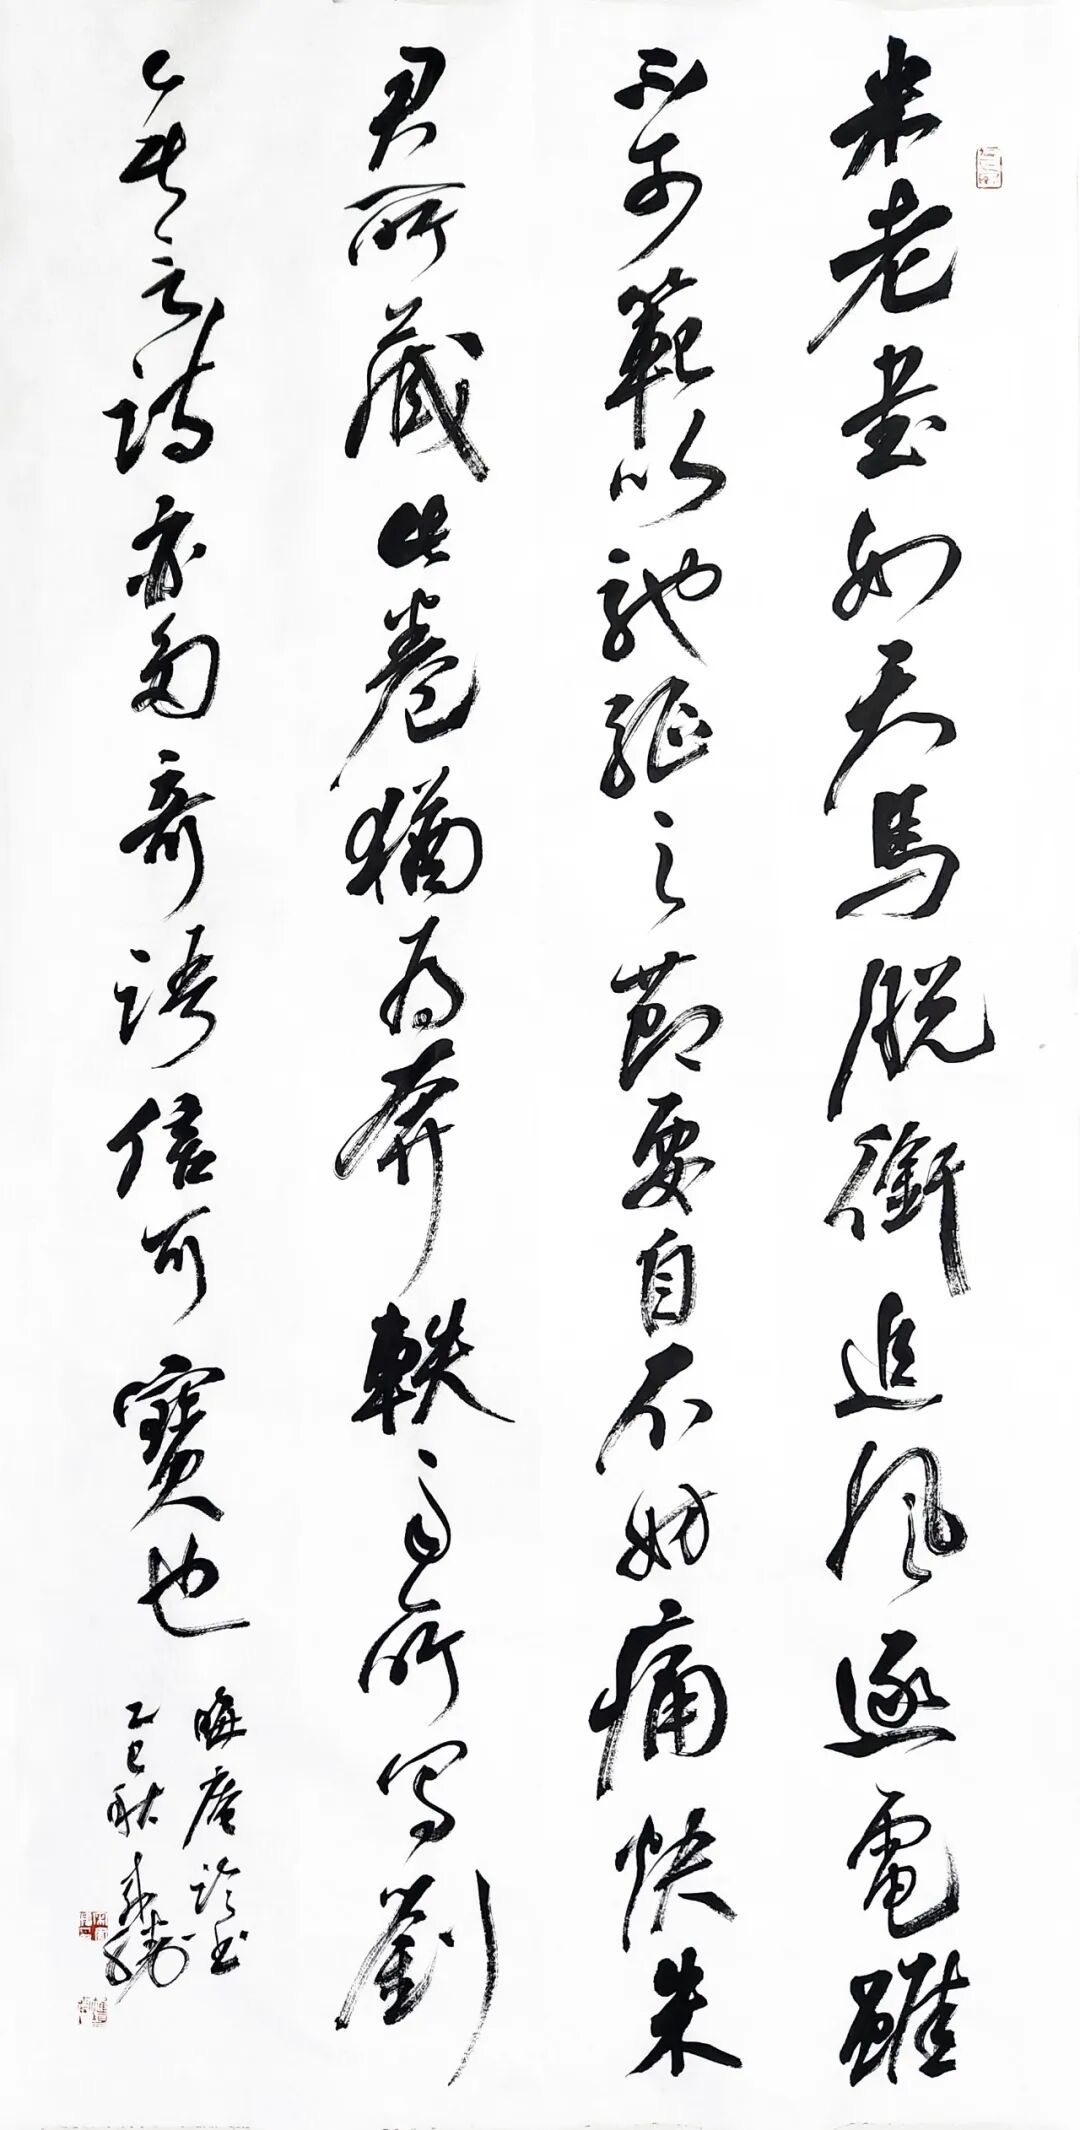 米老書如天馬脫銜追風逐電雖
不可範以馳驅之節要自不妨痛快朱
君所藏此卷猶為奔軼而所寫劉
無言詩亦多奇語信可寶也
晦庵論書
乙巳秋